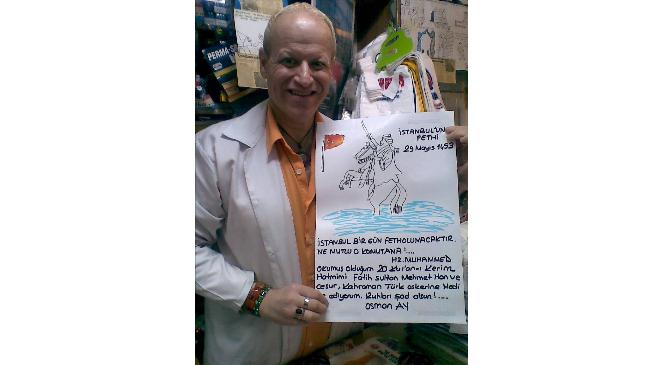 PERMA-S
İSTANBUL'UN
FETHİ
29 Mayıs 1453
İSTANBUL BİR GÜN FETHOLUNACAKTIR.
NE MUTLU O KOMUTANA!....
HZ. MUHAMMED
Okumuş olduğum 20 Kur'an-ı Kerim
Hatmimi Fatih Sultan Mehmet Han ve
Cesur, Kahraman Türk askerine Hedi
ediyorum. Ruhları şad olsun!....
OSMAN AY